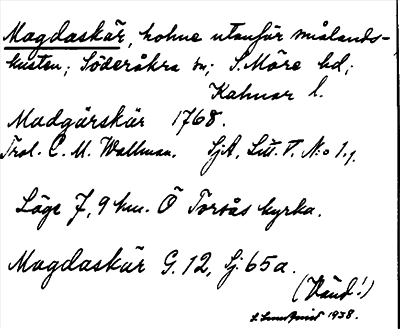 Magdaskär, holme utanför Smålands-
kusten; Söderåkra sn; S. Möre hd;
Kalmar l.
Madgärskär 1768.
Trol. C. M. Wallman. SjA, Litt. V. N:o 1.
Läge 7,9 km. Ö Torsås kyrka.
Magdaskär G. 12, Sj. 65a.
(Vänd!)
1938.